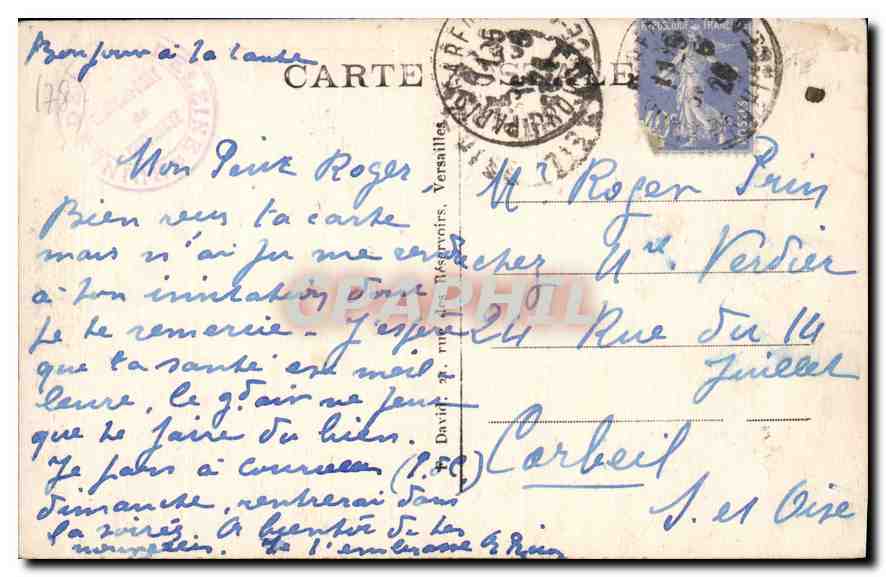 Bonjour à la tante
CARTE POSTALE
178
Mon Petit Roger,
Bien reçu ta carte
mais n'ai pu me rendre
à ton invitation dont
je te remercie - J'espère
que ta santé est meil-
leure, le gd air ne peut
que te faire du bien.
Je pars à
dimanche, rentrerai dans
la soirée. A bientôt de tes
nouvelles. Je t'embrasse
P. David, 22, rue des Réservoirs, Versailles
CPAPHIL
Mr Roger Prin
chez Mr. Verdier
24 Rue du 14
Juillet
Corbeil
S. et Oise